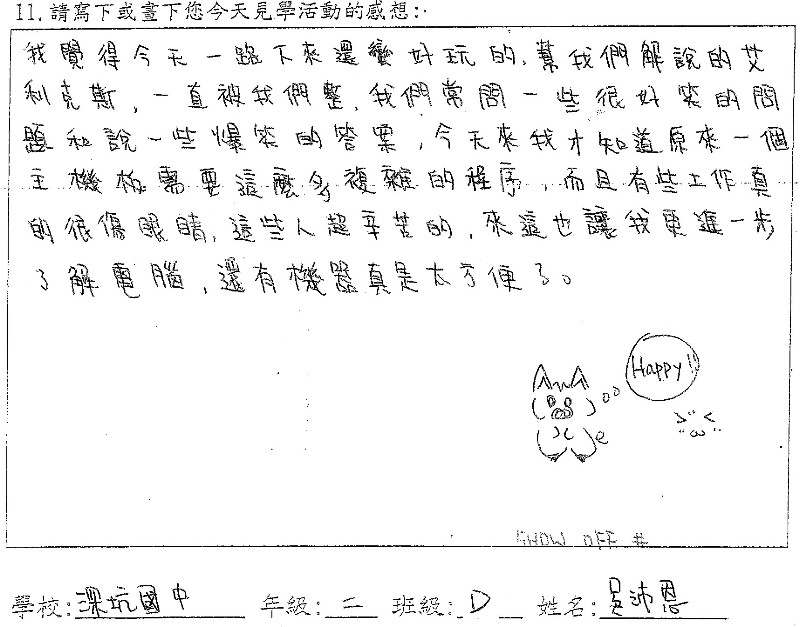 11.請寫下或畫下您今天見學活動的感想:
我覺得今天一路下來還蠻好玩的,幫我們解說的艾
利克斯,一直被我們整,我們常問一些很好笑的問
題和說一些爆笑的答案,今天來我才知道原來一個
主機板需要這麼多複雜的程序,而且有些工作真
的很傷眼睛,這些人超辛苦的,來這也讓我更進一步
了解電腦,還有機器真是太方便了。
Happy!!
SHOW OFF #
學校:深坑國中 年級:二 班級:D 姓名:吳沛恩